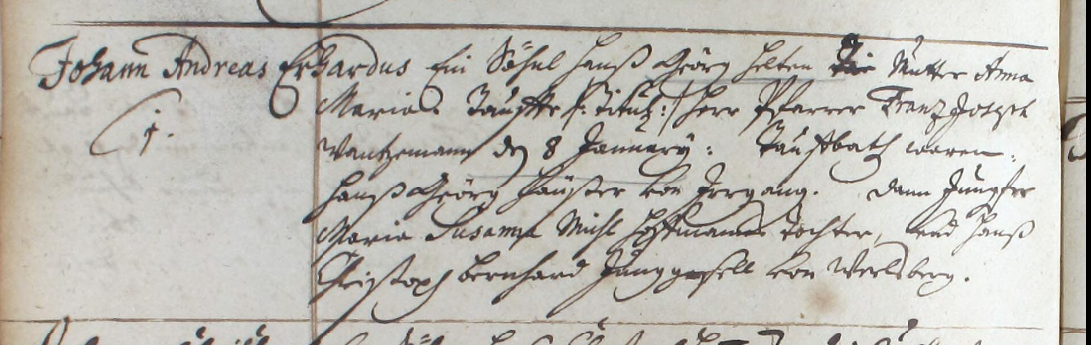 Johann Andreas Erhardus Ein Söhnl Hanß Geörg Helten die Mutter Anna
Maria. Tauffte |: Titul: :| Herr Pfarrer Frantz Joseph
1.
Wantzemann den 8 January: Tauffbath waren.
Hanß Geörg Häußler von Irrgang. Dann Jungfer
Maria Susanna Michl Hoffmanns Tochter, und Hanß
Christoph Bernhard Junggesell von Welsberg.